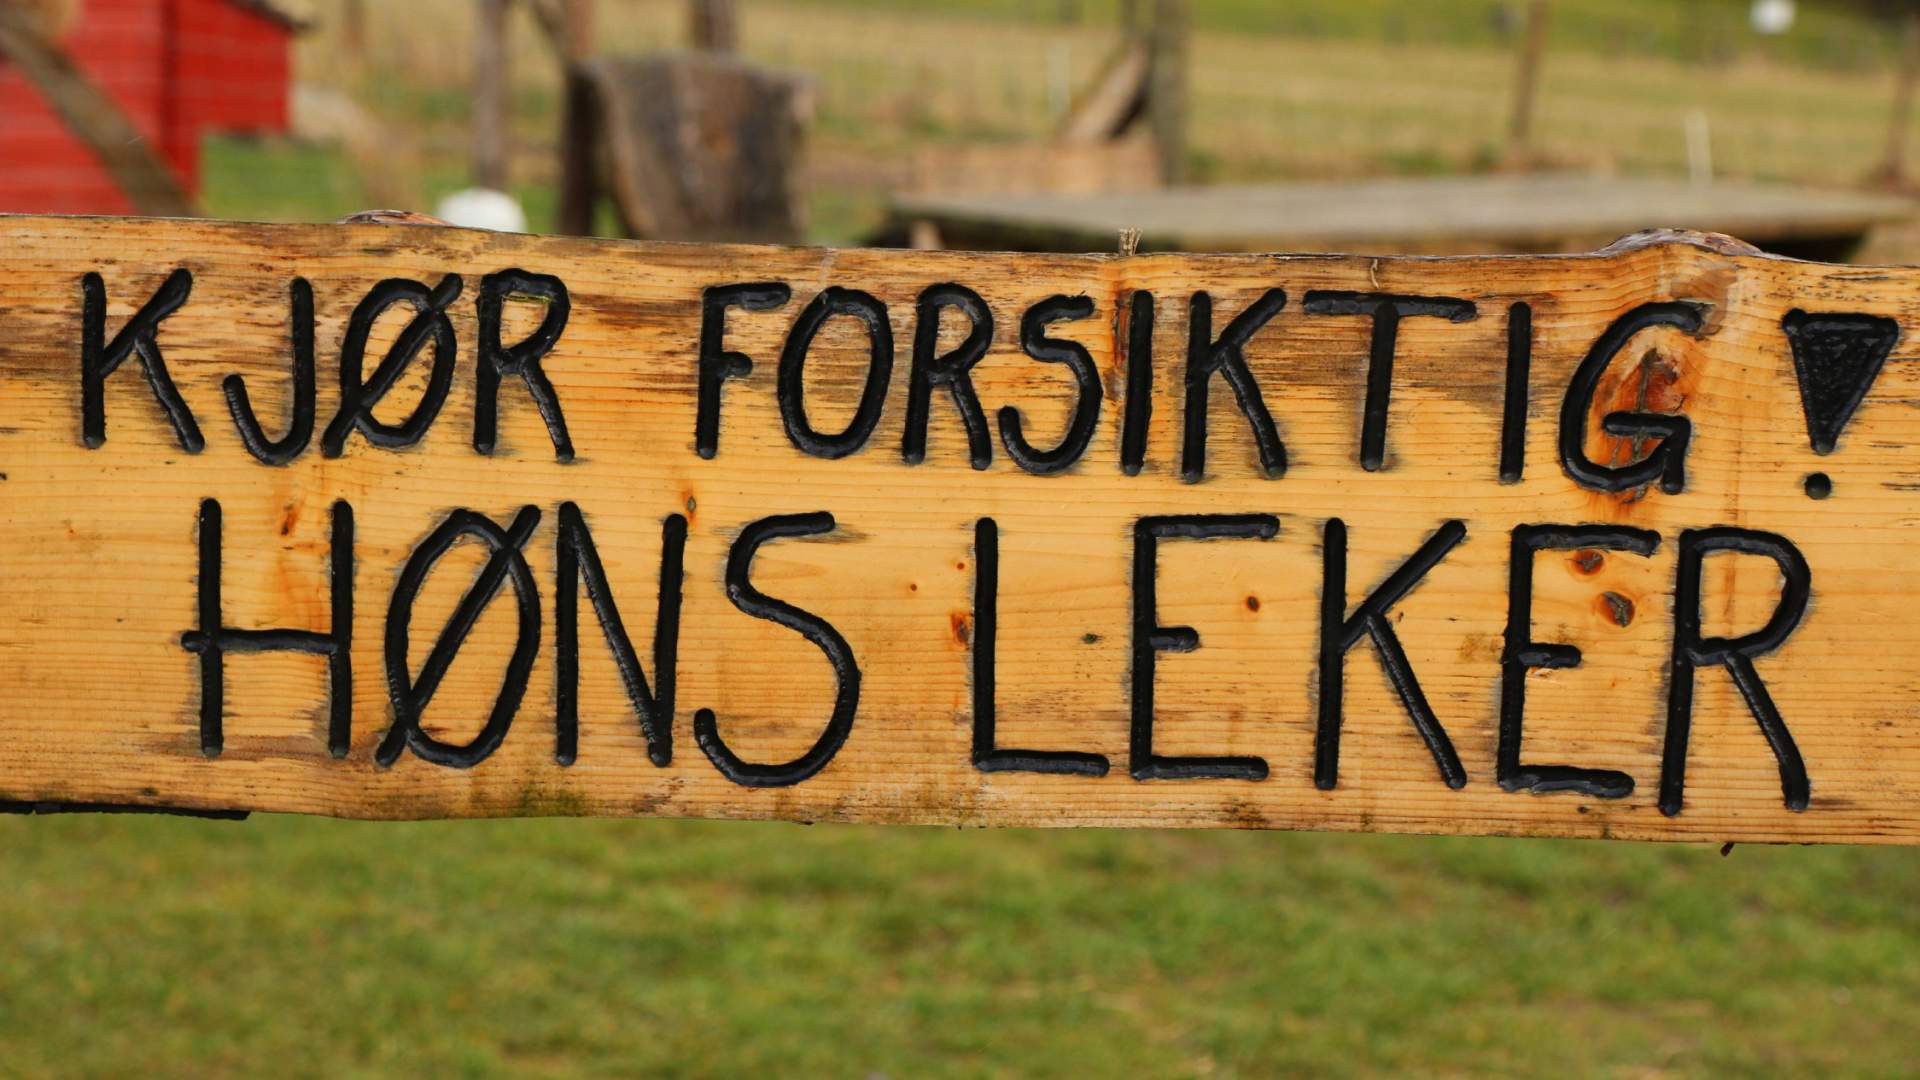 KJØR FORSIKTIG!
HØNS LEKER